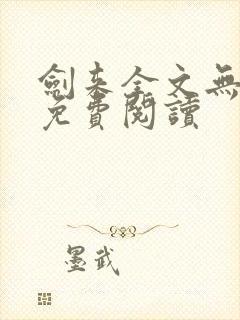 劍来全文無
免費閱讀
墨武